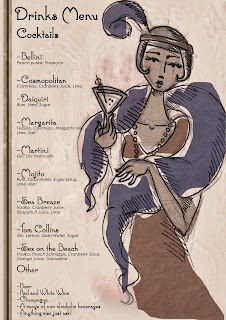 Drinks Menu
Cocktails
~Bellini
Peach puree, Prosecco
~Cosmopolitan
Cointreau, Cranberry Juice, Lime
~Daiquiri
Rum, Lime, Sugar
~Margarita
Tequila, Cointreau, Margarita
Lime, Salt
~Martini
Gin, Dry Vermouth
~Mojito
Rum, Soda Water, Sugar Syrup,
Lime, Mint
~Sea Breaze
Vodka, Cranberry Juice,
Grapefruit Juice, Lime
~Tom Collins
Gin, Lemon, Soda Water, Sugar
~Sex on the Beach
Vodka, Peach Schnapps, Cranberry Juice,
Orange Juice, Grenadine
Other
~Beer
~Red and White Wine
~Champagne
~A range of non alcoholic beverages
~Anything else just ask!